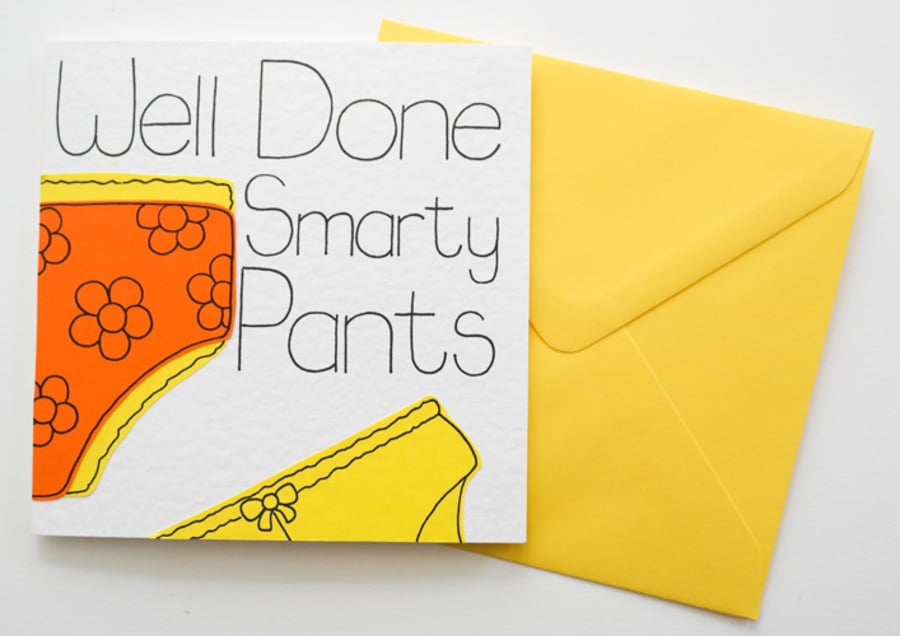 Well Done
Smarty
Pants